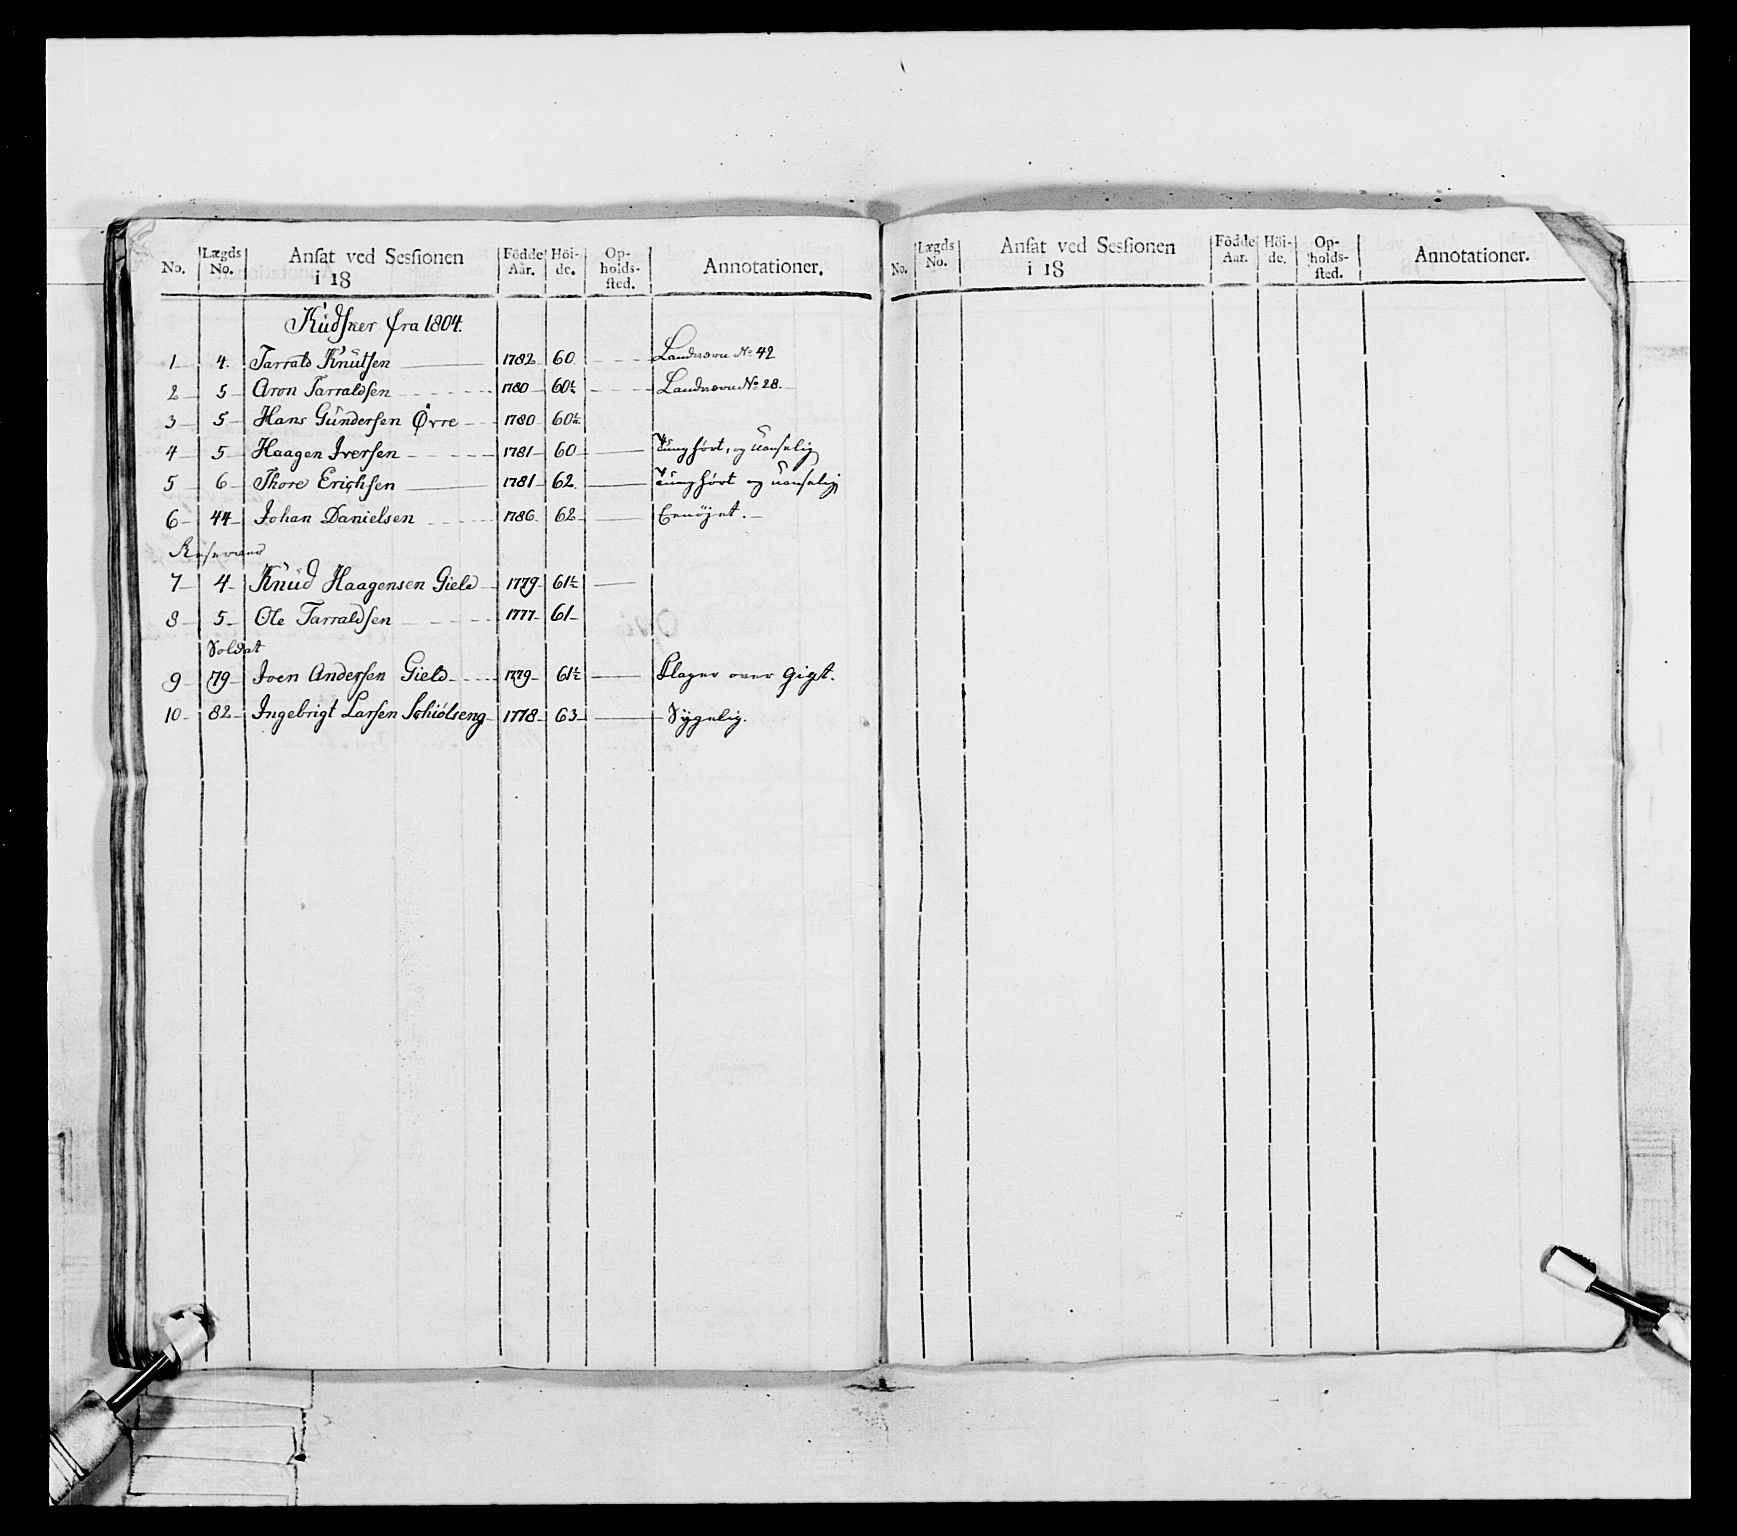 No. Lægds No. Ansat ved Sessionen i 18 Födde Aar. Höide. Opholds-sted. Annotationer.
Kudsker fra 1804.
1 4. Tarrald Knutsen 1782 60 Landværn No 42
2 5 Aron Tarraldsen 1780 60½ Landværn No 28.
3 5 Hans Gundersen Øvre 1780 60½
4 5 Haagen Iversen 1781 60 Tunghört, og Uanselig
5 6 Thore Erichsen 1781 62 Tunghört og uanselig
6 44 Johan Danielsen 1786 62 Eenöjet.
Reserver
7 4 Knud Haagensen Gield 1779 61½
8 5 Ole Tarraldsen 1777 61
Soldat
9 79 Joen Andersen Gield 1779 61½ Klager over Gigt.
10 82 Ingebrigt Larsen Schiölseng 1778 63 Sygelig.
No. Lægds No. Ansat ved Sessionen i 18 Födde Aar. Höi-de. Op-holds-sted. Annotationer.